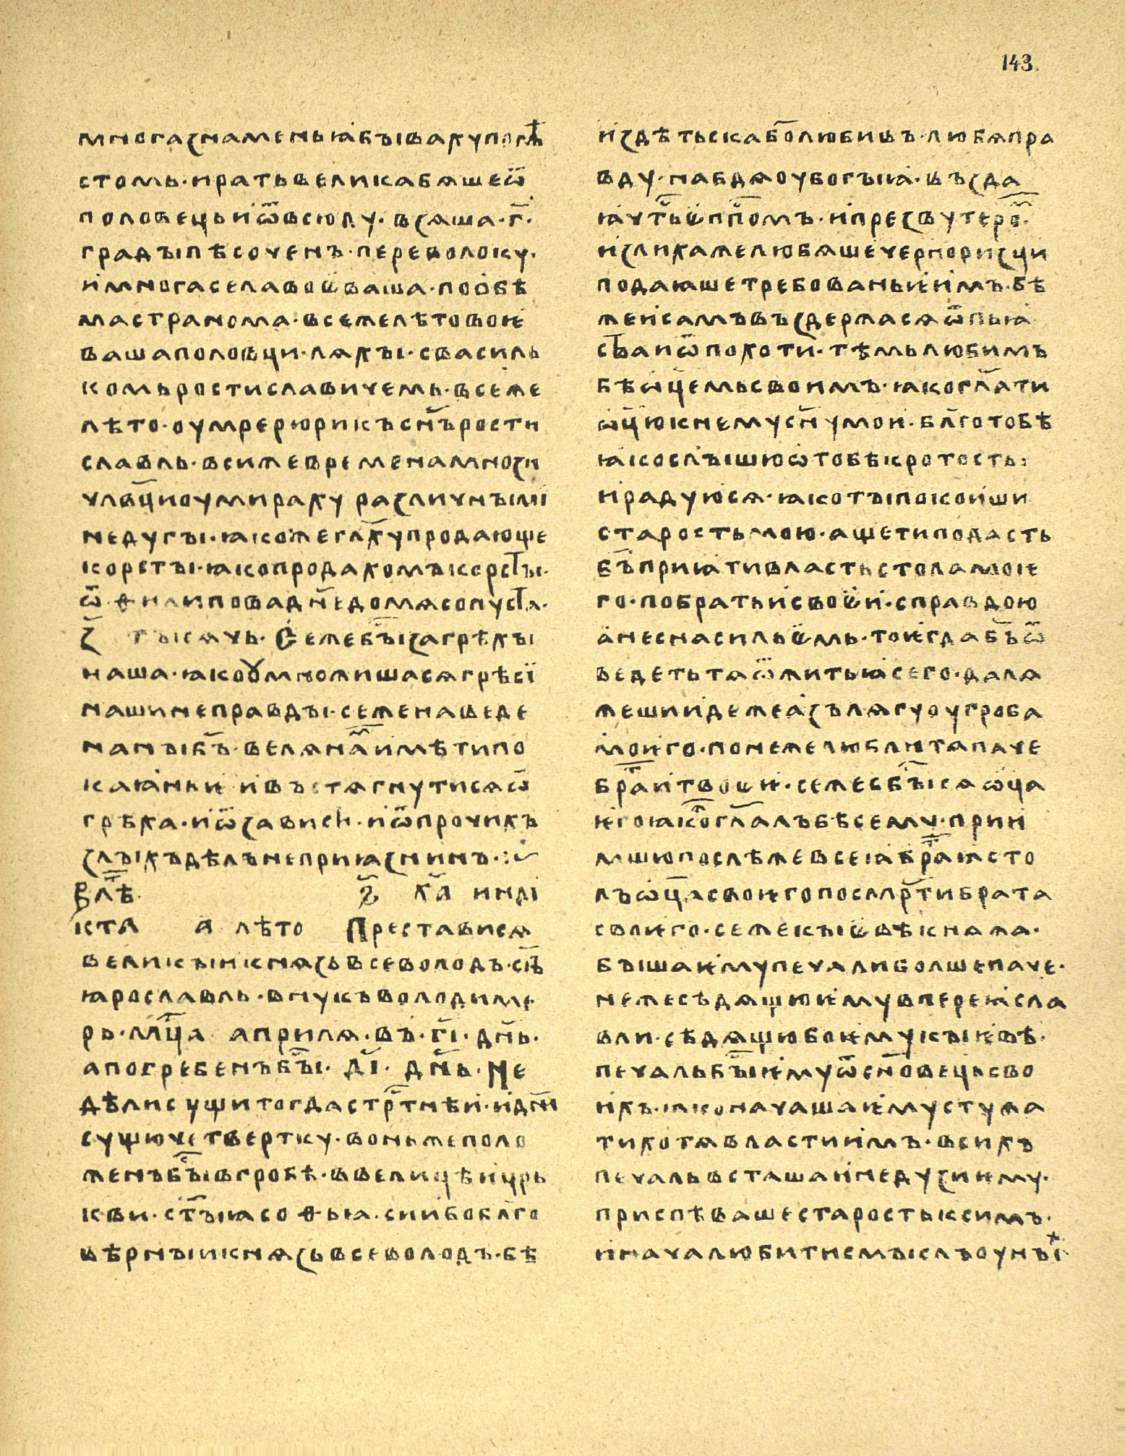 143
многазнаменьꙗбываху по мѣ
стомъ · иратьвеликабѧшеѿ
половець иѿвсюду · взѧша · г҃ ·
градыпѣсоченъ · переволоку ·
имногаселавоѥваша · пообѣ
мастранома · всежелѣтовоѥ
вашаполовци · лѧхы · свасиль
комьростиславичемь · всеже
лѣто · оумрерюрикъсн҃ърости
славль · всижевременамнози
чл҃вциоумираху различными
недугы · ꙗкожегл҃хупродающе
корсты · ꙗкопродахомъкорсты ·
ѿ филиповадн҃едомѧсопуста ·
з҃ тысѧчь · Сежебы̑загрѣхы
наша · ꙗкоꙋмножишасѧгрѣси
нашинеправды · сеженаведе
наныб҃ъ · велѧнаимѣтипо
каꙗньѥ ивъстѧгнутисѧѿ
грѣха · иѿзависти · иѿпрочихъ
злыхъдѣлънеприꙗзнинъ ·
Влѣ҃ ҂ѕ҃ х҃а инди
кта а҃ лѣто Престависѧ
великыикнѧзьвсеволодъ · сн҃ъ
ꙗрославль · внукъволодиме
ръ · мц҃а априлѧ · въ · г҃і · дн҃ь ·
апогребенъбы̑ · д҃і · дн҃ь · Не
дѣлисущитогдастртнѣи · идн҃и
сущючетвертку · воньжеполо
женъбы̑вгробѣ · ввелицѣицр҃ь
кви · ст҃ыꙗсофьꙗ · сииобл҃го
вѣрныикнѧзьвсеволодъ · бѣ
издѣтьскаб҃олюбивъ · любѧпра
вду · набдѧоубогыꙗ · възда
ꙗчтьѥп҃пмъ · ипрезвутером ·
излихажелюбѧшечерноризци
подаꙗшетребованьѥимъ · бѣ
жеисамъвъздержасѧѿпьꙗ
ст҃ваиѿпохоти · тѣмьлюбимъ
бѣѡц҃емьсвоимъ · ꙗкогл҃ати
ѡц҃юкнемусн҃умои · бл҃готобѣ
ꙗкослышюѡтобѣкротость
ирадуюсѧ · ꙗкотыпокоиши
старостьмою · ащетиподасть
б҃ъприꙗтивластьстоламоѥ
го · побратьисвоѥи · справдою
анеснасильѥмь · тоѥгдаб҃ъѿ
ведетьтѧѿжитьꙗсего · далѧ
жешиидежеазълѧгуоугроба
моѥго · понежелюблютѧпаче
братитвоѥи · сежесбы̑сѧѡц҃а
ѥгоꙗкогл҃алъбѣсему · прии
мшюпослѣжевсеꙗбратꙗсто
лъѡц҃асвоѥгопосмртибрата
своѥго · сежекыѥвѣкнѧжа ·
бышаѥмупечалиболшепаче ·
нежесѣдѧщюѥмувпереꙗсла
вли · сѣдѧщюбоѥмукыѥвѣ ·
печальбы̑ѥмуѿсн҃овецьсво
ихъ · ꙗконачашаѥмустужа
тихотѧвластиимъ · всихъ
печальвсташаинедузиѥму ·
приспѣвашестаростьксимъ ·
иначалюбитисмыслъоуны